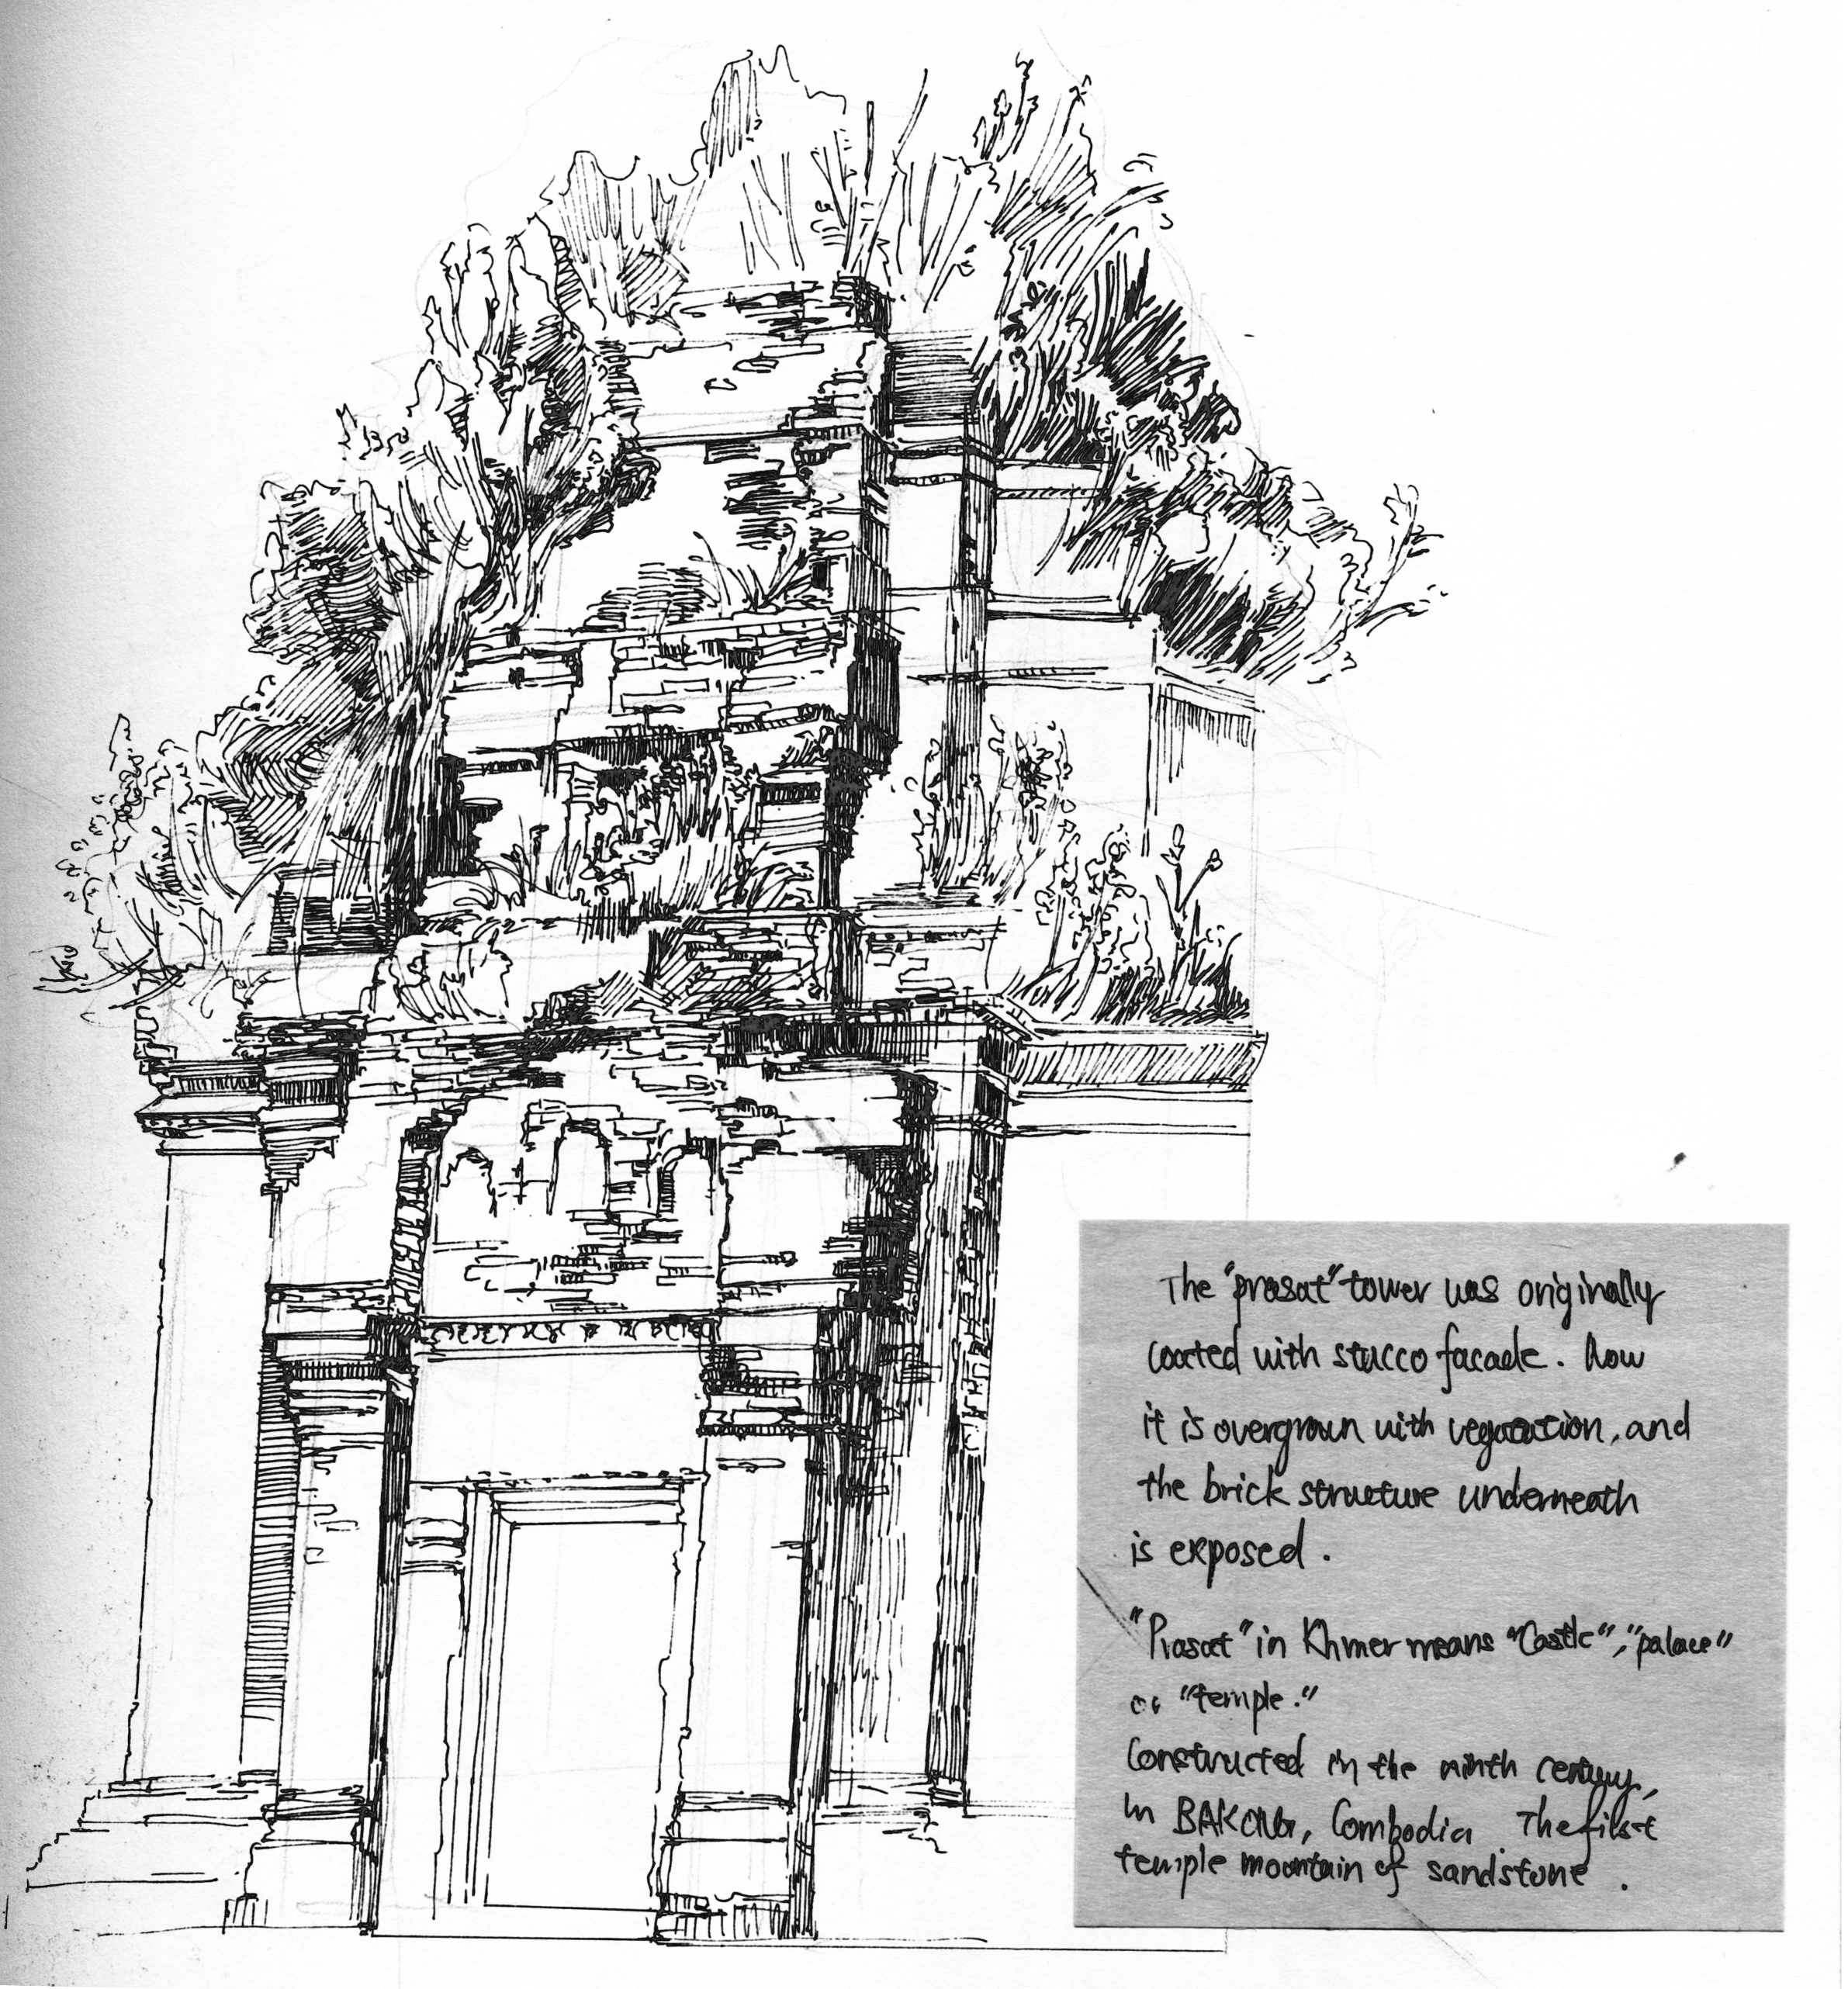 The "prasat" tower was originally
coated with stucco facade. Now
it is overgrown with vegetation, and
the brick structure underneath
is exposed.
"Prasat" in Khmer means "Castle", "palace"
or "temple."
Constructed in the ninth century,
in BAKONG, Cambodia. The first
temple mountain of sandstone.